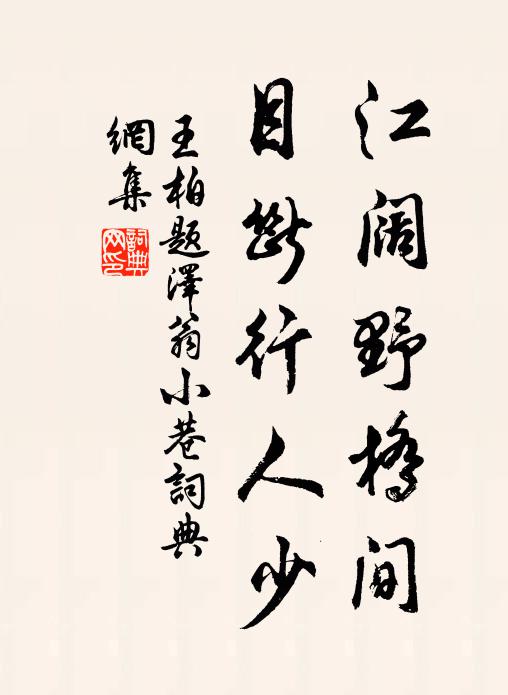 江阔野橋间
目斷行人少
王柏题澤翁小巷詞典
網集
詞典網印